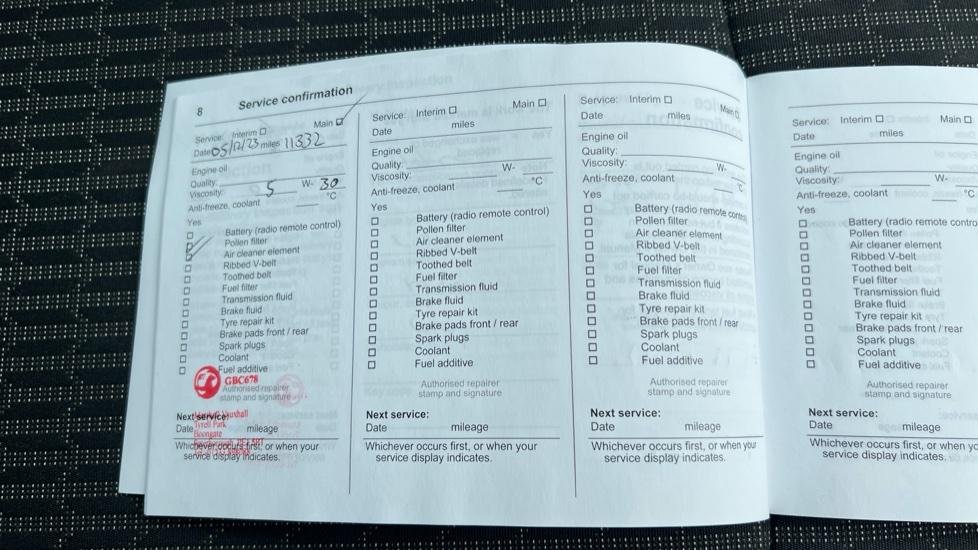 8 Service confirmation
Service: Interim Main
Date 05/12/23 miles 11332
Engine oil
Quality:
Viscosity: 5 W- 30
Anti-freeze, coolant °C
Yes
Battery (radio remote control)
Pollen filter
Air cleaner element
Ribbed V-belt
Toothed belt
Fuel filter
Transmission fluid
Brake fluid
Tyre repair kit
Brake pads front / rear
Spark plugs
Coolant
Fuel additive
GBC678
Authorised repairer
stamp and signature
Vauxhall
Next service:
Tyrell Park
Date mileage
Boongate
Whichever occurs first, or when your
service display indicates.
Service: Interim Main
Date miles
Engine oil
Quality:
Viscosity: W-
Anti-freeze, coolant °C
Yes
Battery (radio remote control)
Pollen filter
Air cleaner element
Ribbed V-belt
Toothed belt
Fuel filter
Transmission fluid
Brake fluid
Tyre repair kit
Brake pads front / rear
Spark plugs
Coolant
Fuel additive
Authorised repairer
stamp and signature
Next service:
Date mileage
Whichever occurs first, or when your
service display indicates.
Service: Interim Main
Date miles
Engine oil
Quality:
Viscosity: W-
Anti-freeze, coolant °C
Yes
Battery (radio remote control)
Pollen filter
Air cleaner element
Ribbed V-belt
Toothed belt
Fuel filter
Transmission fluid
Brake fluid
Tyre repair kit
Brake pads front / rear
Spark plugs
Coolant
Fuel additive
Authorised repairer
stamp and signature
Next service:
Date mileage
Whichever occurs first, or when your
service display indicates.
Service: Interim Main
Date miles
Engine oil
Quality:
Viscosity: W-
Anti-freeze, coolant °C
Yes
Battery (radio remote contro
Pollen filter
Air cleaner element
Ribbed V-belt
Toothed belt
Fuel filter
Transmission fluid
Brake fluid
Tyre repair kit
Brake pads front / rear
Spark plugs
Coolant
Fuel additive
Authorised repairer
stamp and signature
Next service:
Date mileage
Whichever occurs first, or when yo
service display indicates.